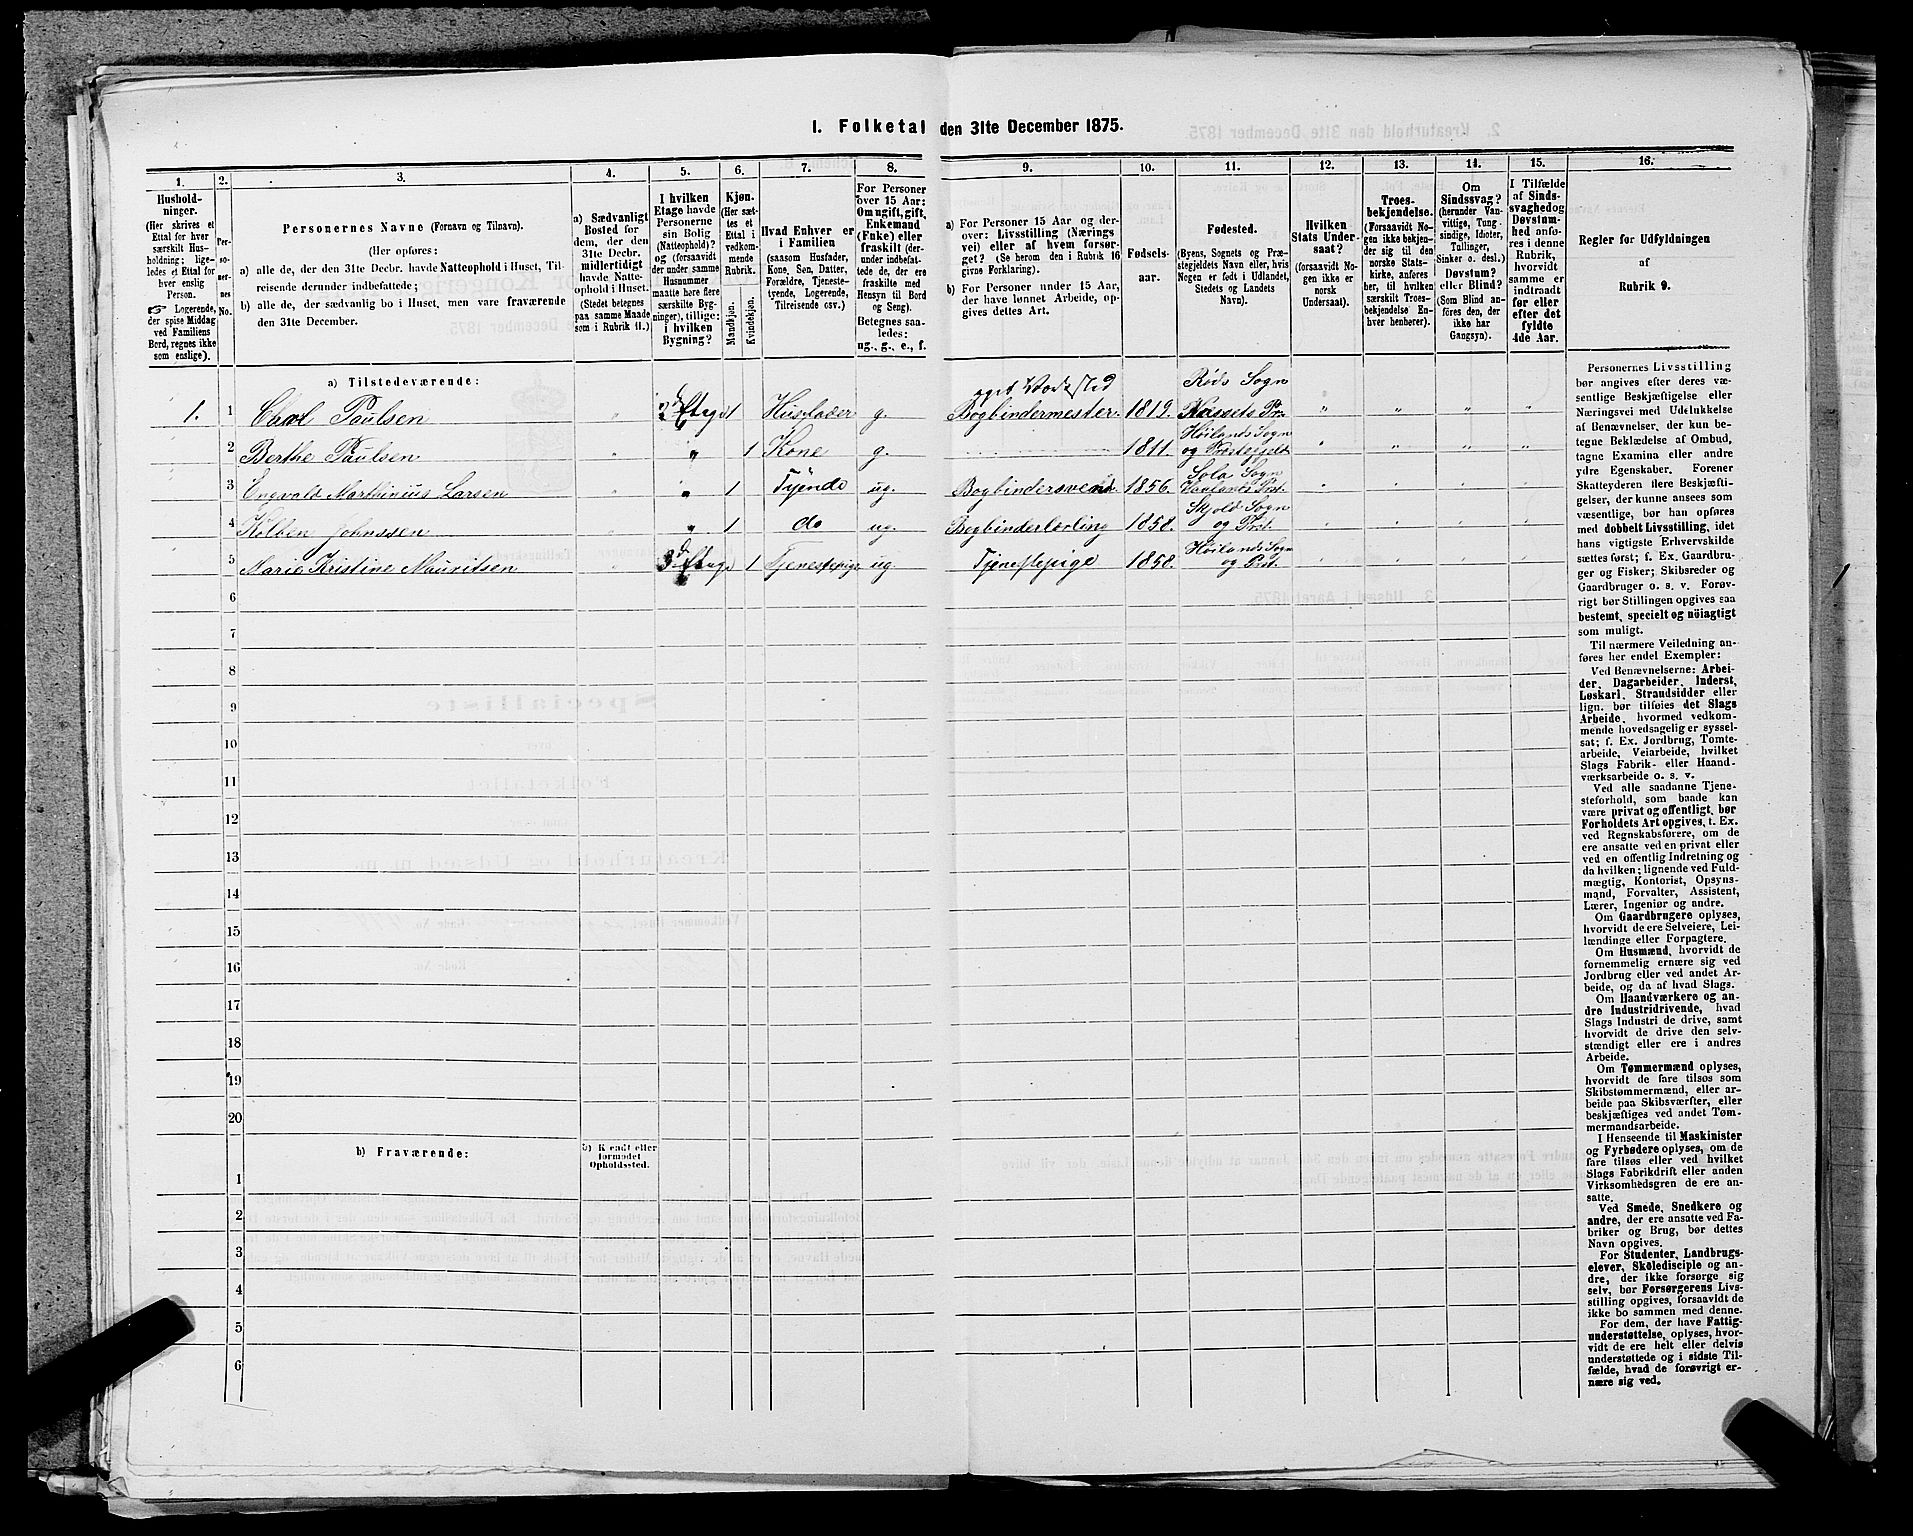 1. Folketal den 31te December 1875.
1. 2. 3. 4. 5. 6. 7. 8. 9. 10. 11. 12. 13. 14. 15. 16.
Hushold-
ninger.
(Her skrives et
Ettal for hver
særskilt Hus-
holdning; lige-
ledes et Ettal for
hver enslig
Person.
Logerende,
der spise Middag
ved Familiens
Bord, regnes ikke
som enslige).
Per-
so-
ner-
nes
No.
Personernes Navne (Fornavn og Tilnavn).
(Her opføres:
a) alle de, der den 31te Decbr. havde Natteophold i Huset, Til-
reisende derunder indbefattede;
b) alle de, der sædvanlig bo i Huset, men vare fraværende
den 31te December.
a) Sædvanligt
Bosted for
dem, der den
31te Decbr.
midlertidigt
havde Natte-
ophold i Huset.
(Stedet betegnes
paa samme Maade
som i Rubrik 11.)
I hvilken
Etage havde
Personerne
sin Bolig
(Natteophold)?
og (forsaavidt
der under samme
Husnummer
maatte høre flere
særskilte Byg-
ninger), tillige:
i hvilken
Bygning?
Kjøn.
(Her sæt-
tes et
Ettal i
vedkom-
mende
Rubrik.
Mandkjøn.
Kvindekjøn.
Hvad Enhver er
i Familien
(saasom Husfader,
Kone, Søn, Datter,
Forældre, Tjeneste-
tyende, Logerende,
Tilreisende osv.)
For Personer
over 15 Aar:
Om ugift, gift,
Enkemand
(Enke) eller
fraskilt (der-
under indbefat-
tede de, der ere
fraskilte med
Hensyn til Bord
og Seng).
Betegnes saa-
ledes:
ug., g., e., f.
a) For Personer 15 Aar og der-
over: Livsstilling (Nærings
vei) eller af hvem forsør-
get? (Se herom den i Rubrik 16
givne Forklaring).
b) For Personer under 15 Aar,
der have lønnet Arbeide, op-
gives dettes Art.
Fødsels-
aar.
Fødested.
(Byens, Sognets og Præ-
stegjeldets Navn eller, hvis
Nogen er født i Udlandet,
Stedets og Landets
Navn).
Hvilken
Stats Under-
saat?
(forsaavidt No-
gen ikke er
norsk
Undersaat).
Troes-
bekjendelse.
(Forsaavidt No-
gen ikke bekjen-
der sig til den
norske Stats-
kirke, anføres
her, til hvilken
særskilt Troes-
bekjendelse En-
hver henhører).
Om
Sindssvag?
(herunder Van-
vittige, Tung-
sindige, Idioter,
Tullinger,
Sinker o. desl.)
Døvstum?
eller Blind?
(Som Blind an-
føres den, der
ikke har
Gangsyn).
I Tilfælde
af Sinds-
svaghed og
Døvstum-
hed anfø-
res i denne
Rubrik,
hvorvidt
samme er
indtraadt
før eller
efter det
fyldte
4de Aar.
Regler for Udfyldningen
af
Rubrik 9.
a) Tilstedeværende:
eget Værksted Røds Sogn
1. 1 Carl Paulsen " 2d Etage 1 Husfader g. Bogbindermester. 1819. Næssets Pr. " " " "
Höilands Sogn
2 Berthe Paulsen " " 1 Kone g. 1811. og Præstegjeld " " " "
Sola Sogn
3 Engvald Marthinius Larsen " " 1 Tyende ug. Bogbindersvend 1856. Haalands Pst. " " " "
Skjold Sogn
4 Kolben Johnssen " " 1 do ug. Bogbinderlærling 1858. og Prst. " " " "
Höilands Sogn
5 Marie Kristine Mauritsen " 3d Etage 1 Tjenestepige ug. Tjenestepige 1858. og Pst. " " " "
6
7
8
9
10
11
12
13
14
15
16
17
18
19
20
b) Fraværende:
b) Kjendt eller
formodet
Opholdssted.
1
2
3
4
5
6
Personernes Livsstilling
bør angives efter deres væ-
sentlige Beskjæftigelse eller
Næringsvei med Udelukkelse
af Benævnelser, der kun be-
tegne Beklædelse af Ombud,
tagne Examina eller andre
ydre Egenskaber. Forener
Skatteyderen flere Beskjæfti-
gelser, der kunne ansees som
væsentlige, bør han opføres
med dobbelt Livsstilling, idet
hans vigtigste Erhvervskilde
sættes først; f. Ex. Gaardbru-
ger og Fisker; Skibsreder og
Gaardbruger o. s. v. Forøv-
rigt bør Stillingen opgives saa
bestemt, specielt og nöiagtigt
som muligt.
Til nærmere Veiledning an-
føres her endel Exempler:
Ved Benævnelserne: Arbei-
der, Dagarbeider, Inderst,
Løskarl, Strandsidder eller
lign. bør tilføies det Slags
Arbeide, hvormed vedkom-
mende hovedsagelig er syssel-
sat; f. Ex. Jordbrug, Tomte-
arbeide, Veiarbeide, hvilket
Slags Fabrik- eller Haand-
værksarbeide o. s. v.
Ved alle saadanne Tjene-
steforhold, som baade kan
være privat og offentligt, bør
Forholdets Art opgives, t. Ex.
ved Regnskabsførere, om de
ere ansatte ved en privat eller
ved en offentlig Indretning og
da hvilken; lignende ved Fuld-
mægtig, Kontorist, Opsyns-
mand, Forvalter, Assistent,
Lærer, Ingeniør og andre.
Om Gaardbrugere oplyses,
hvorvidt de ere Selveiere, Lei-
lændinge eller Forpagtere.
Om Husmænd, hvorvidt de
fornemmelig ernære sig ved
Jordbrug eller ved andet Ar-
beide, og da af hvad Slags.
Om Haandværkere og an-
dre Industridrivende, hvad
Slags Industri de drive, samt
hvorvidt de drive den selv-
stændigt eller ere i andres
Arbeide.
Om Tømmermænd oplyses,
hvorvidt de fare tilsøs som
Skibstømmermænd, eller ar-
beide paa Skibsværfter, eller
beskjæftiges ved andet Tøm-
mermandsarbeide.
I Henseende til Maskinister
og Fyrbødere oplyses, om de
fare tilsøs eller ved hvilket
Slags Fabrikdrift eller anden
Virksomhedsgren de ere an-
satte.
Ved Smede, Snedkere og
andre, der ere ansatte ved Fa-
briker og Brug, bør dettes
Navn opgives.
For Studenter, Landbrugs-
elever, Skoledisciple og an-
dre, der ikke forsørge sig
selv, bør Forsørgerens Livs-
stilling opgives, forsaavidt de
ikke bo sammen med denne.
For dem, der have Fattig-
understøttelse, oplyses, hvor-
vidt de ere helt eller delvis
understøttede og i sidste Til-
fælde, hvad de forøvrigt er-
nære sig ved.